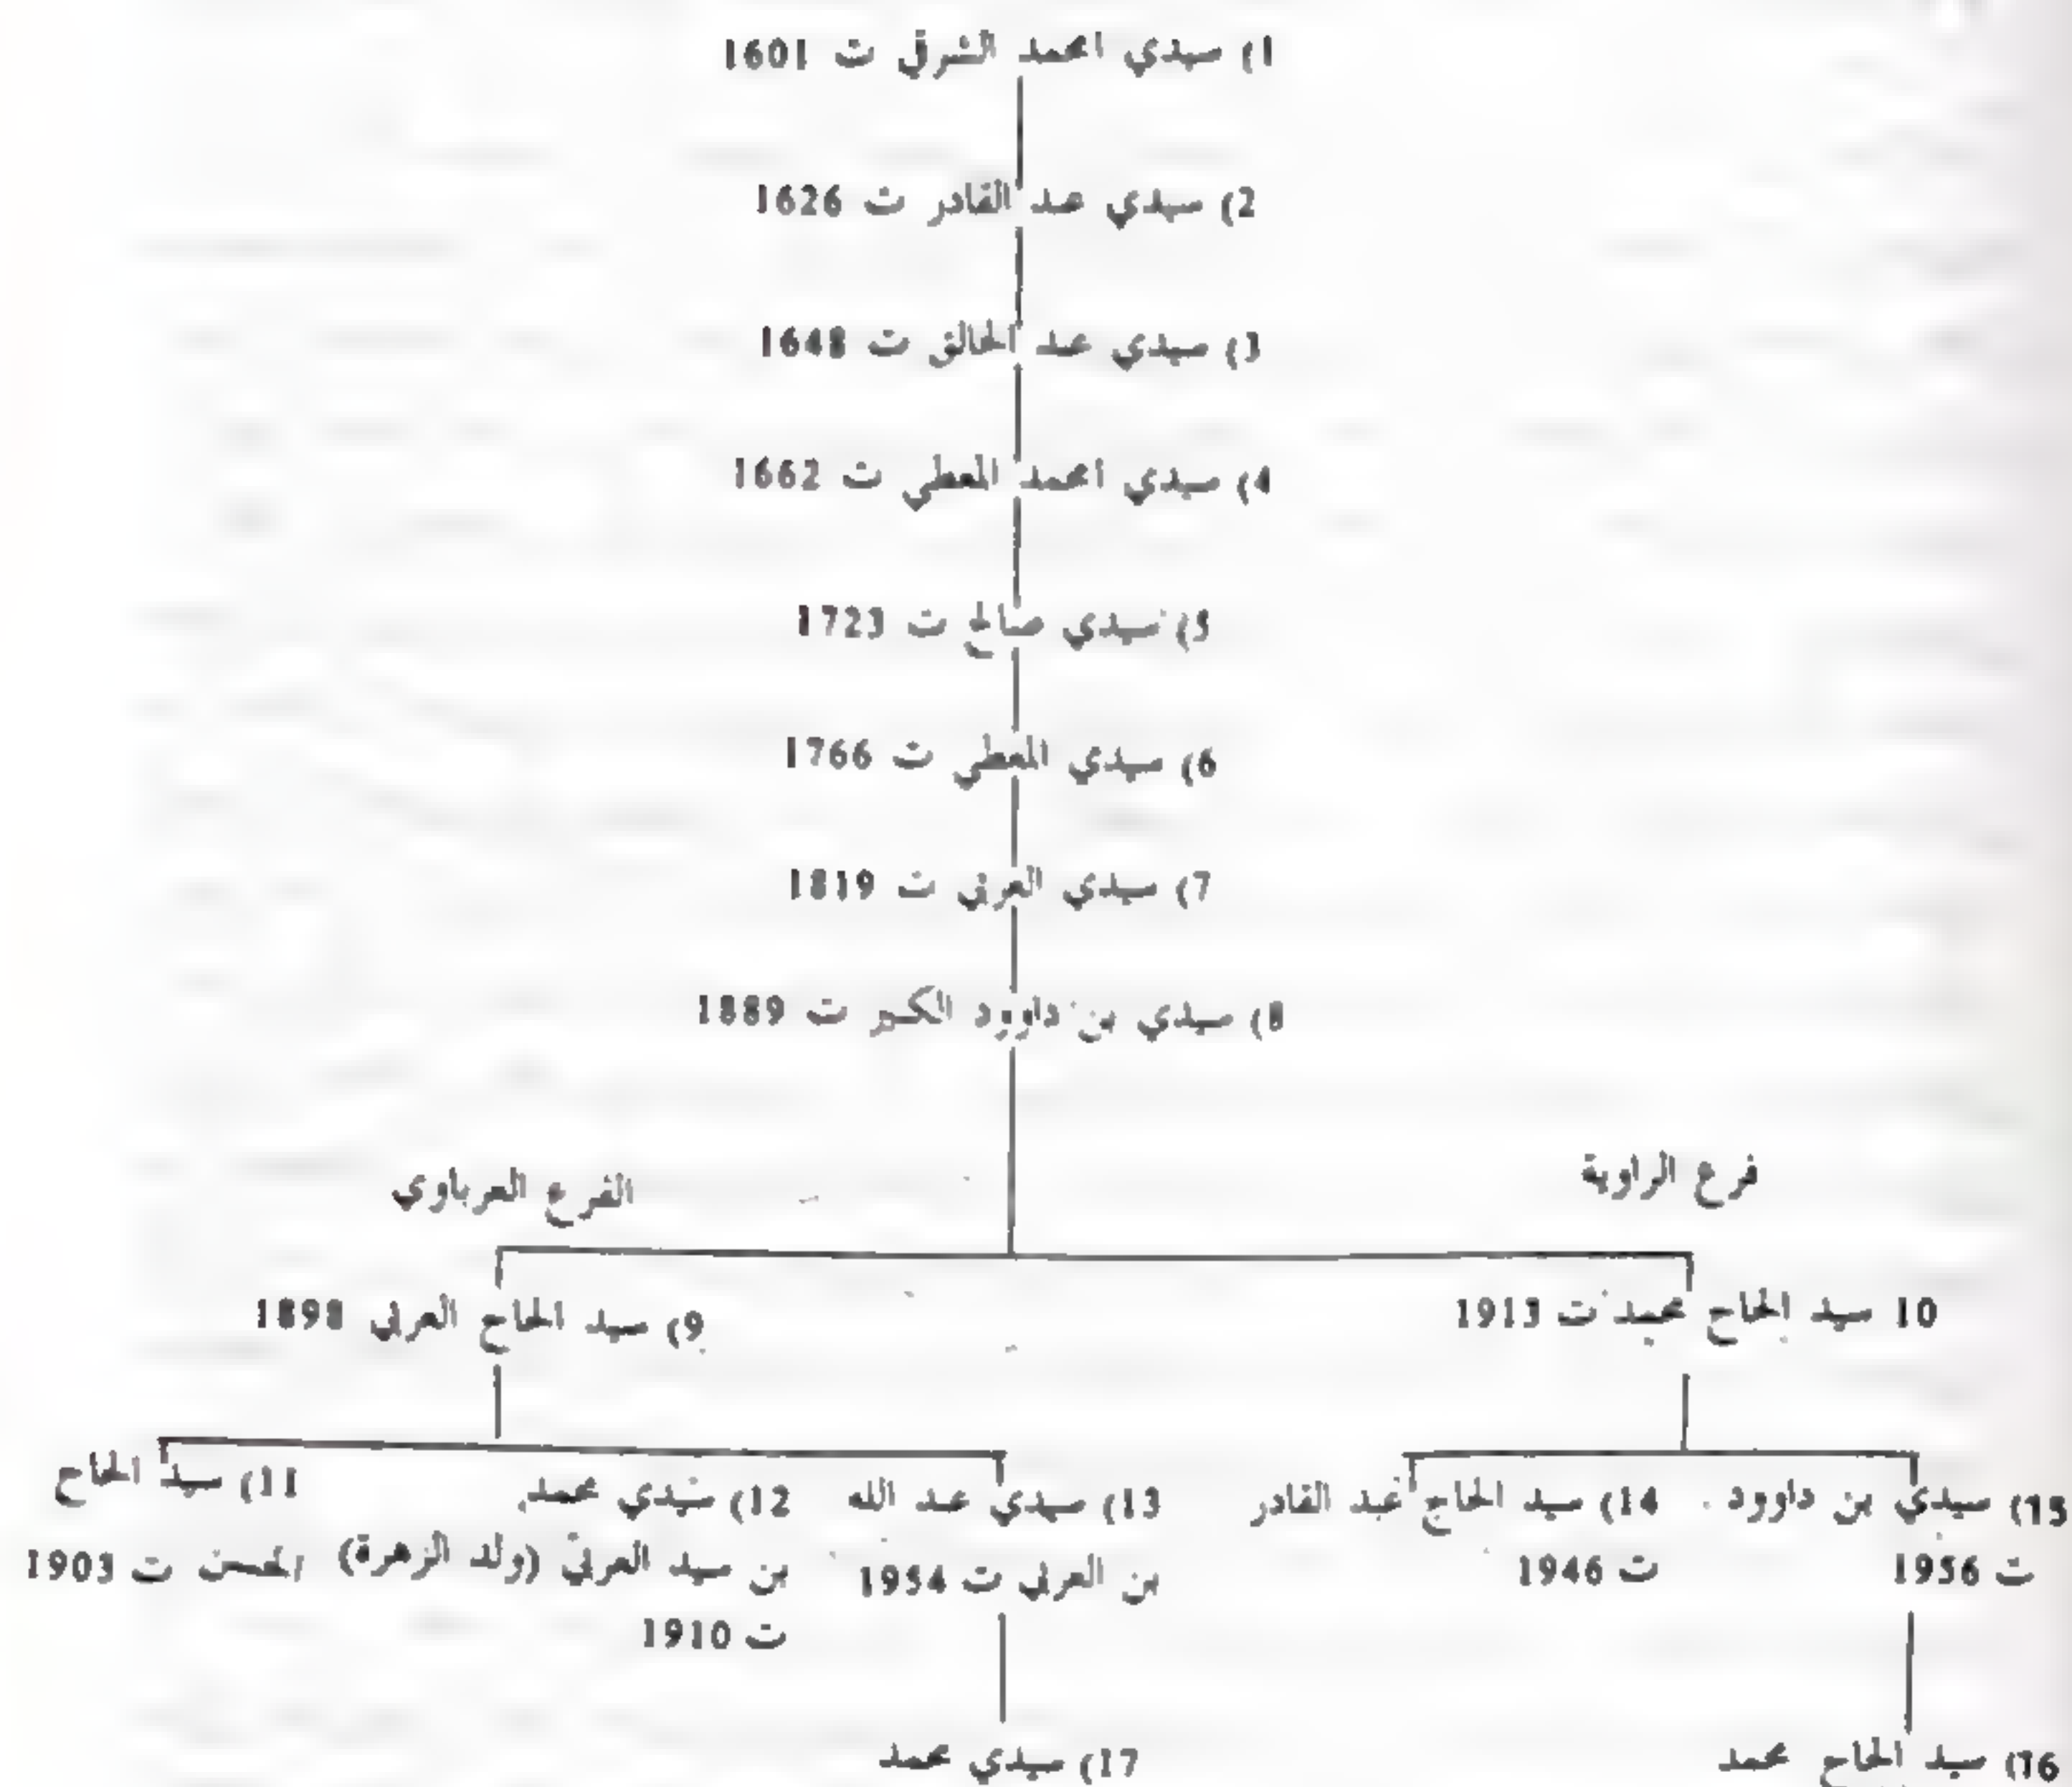 1) سيدي امحمد الشرقي ت 1601
2) سيدي عبد القادر ت 1626
3) سيدي عبد الخالق ت 1648
4) سيدي امحمد المعطي ت 1662
5) سيدي صالح ت 1723
6) سيدي المعطي ت 1766
7) سيدي العربي ت 1819
8) سيدي بن داوود الكبير ت 1889
فرع الزاوية
الفرع العرباوي
10 سيد الحاج محمد ت 1913
9) سيد الحاج العربي 1898
15) سيدي بن داوود
ت 1956
14) سيد الحاج عبد القادر
ت 1946
13) سيدي عبد الله
بن العربي ت 1954
12) سيدي محمد
بن سيد العربي (ولد الزهرة)
ت 1910
11) سيد الحاج
الحسن ت 1903
16) سيد الحاج محمد
17) سيدي محمد